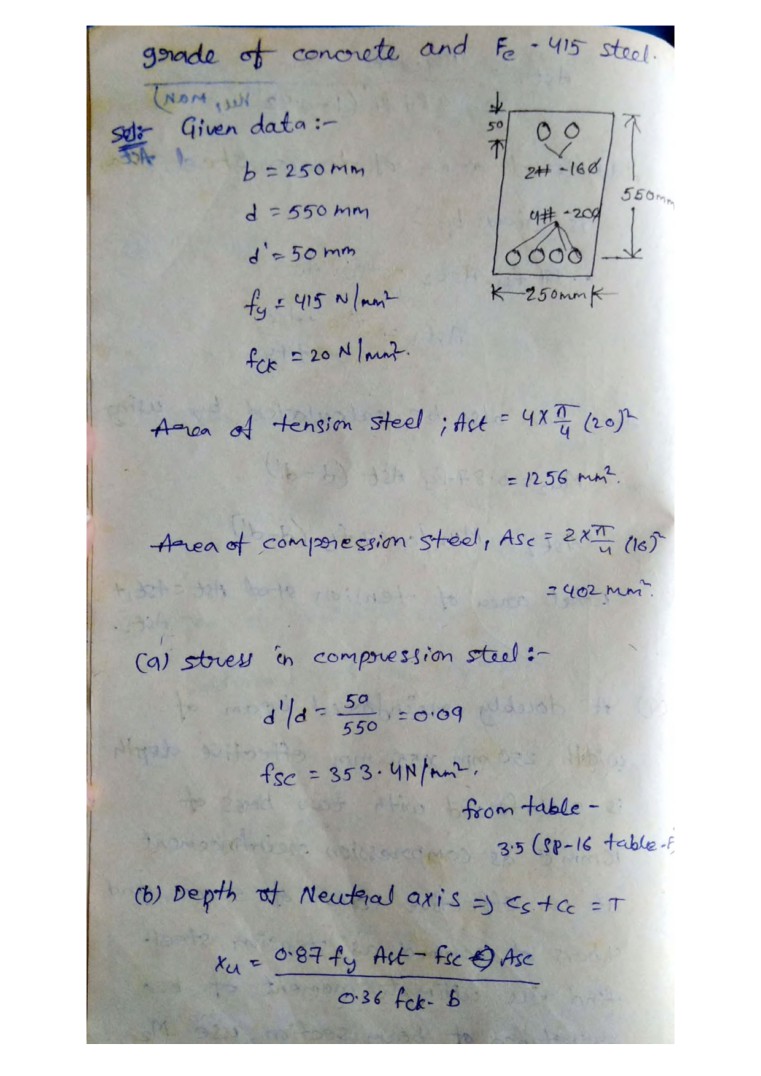 grade of concrete and Fe - 415 steel.
Sol:- Given data :-
b = 250 mm
d = 550 mm
d' = 50 mm
fy = 415 N/mm²
fck = 20 N/mm².
50
2# -16Ø
4# -20Ø
550mm
250mm
Area of tension steel ; Ast = 4 x π/4 (20)²
= 1256 mm².
Area of compression steel, Asc = 2 x π/4 (16)²
= 402 mm².
(a) stress in compression steel :-
d'/d = 50/550 = 0.09
fsc = 353.4 N/mm².
from table -
3.5 (SP-16 table-F
(b) Depth of Neutral axis => Cs + Cc = T
xu = 0.87 fy Ast - fsc Asc / 0.36 fck. b